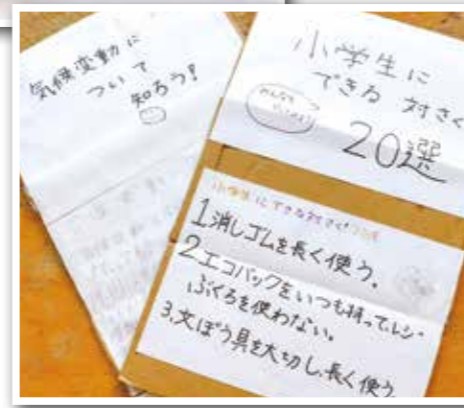 気候変動に
ついて
知ろう!
小学生に
できる 対さく
20選
小学生にできる対さく20選
1.消しゴムを長く使う。
2.エコバックをいつも持って、レジ
ぶくろを使わない。
3.文ぼう具を大切し、長く使う